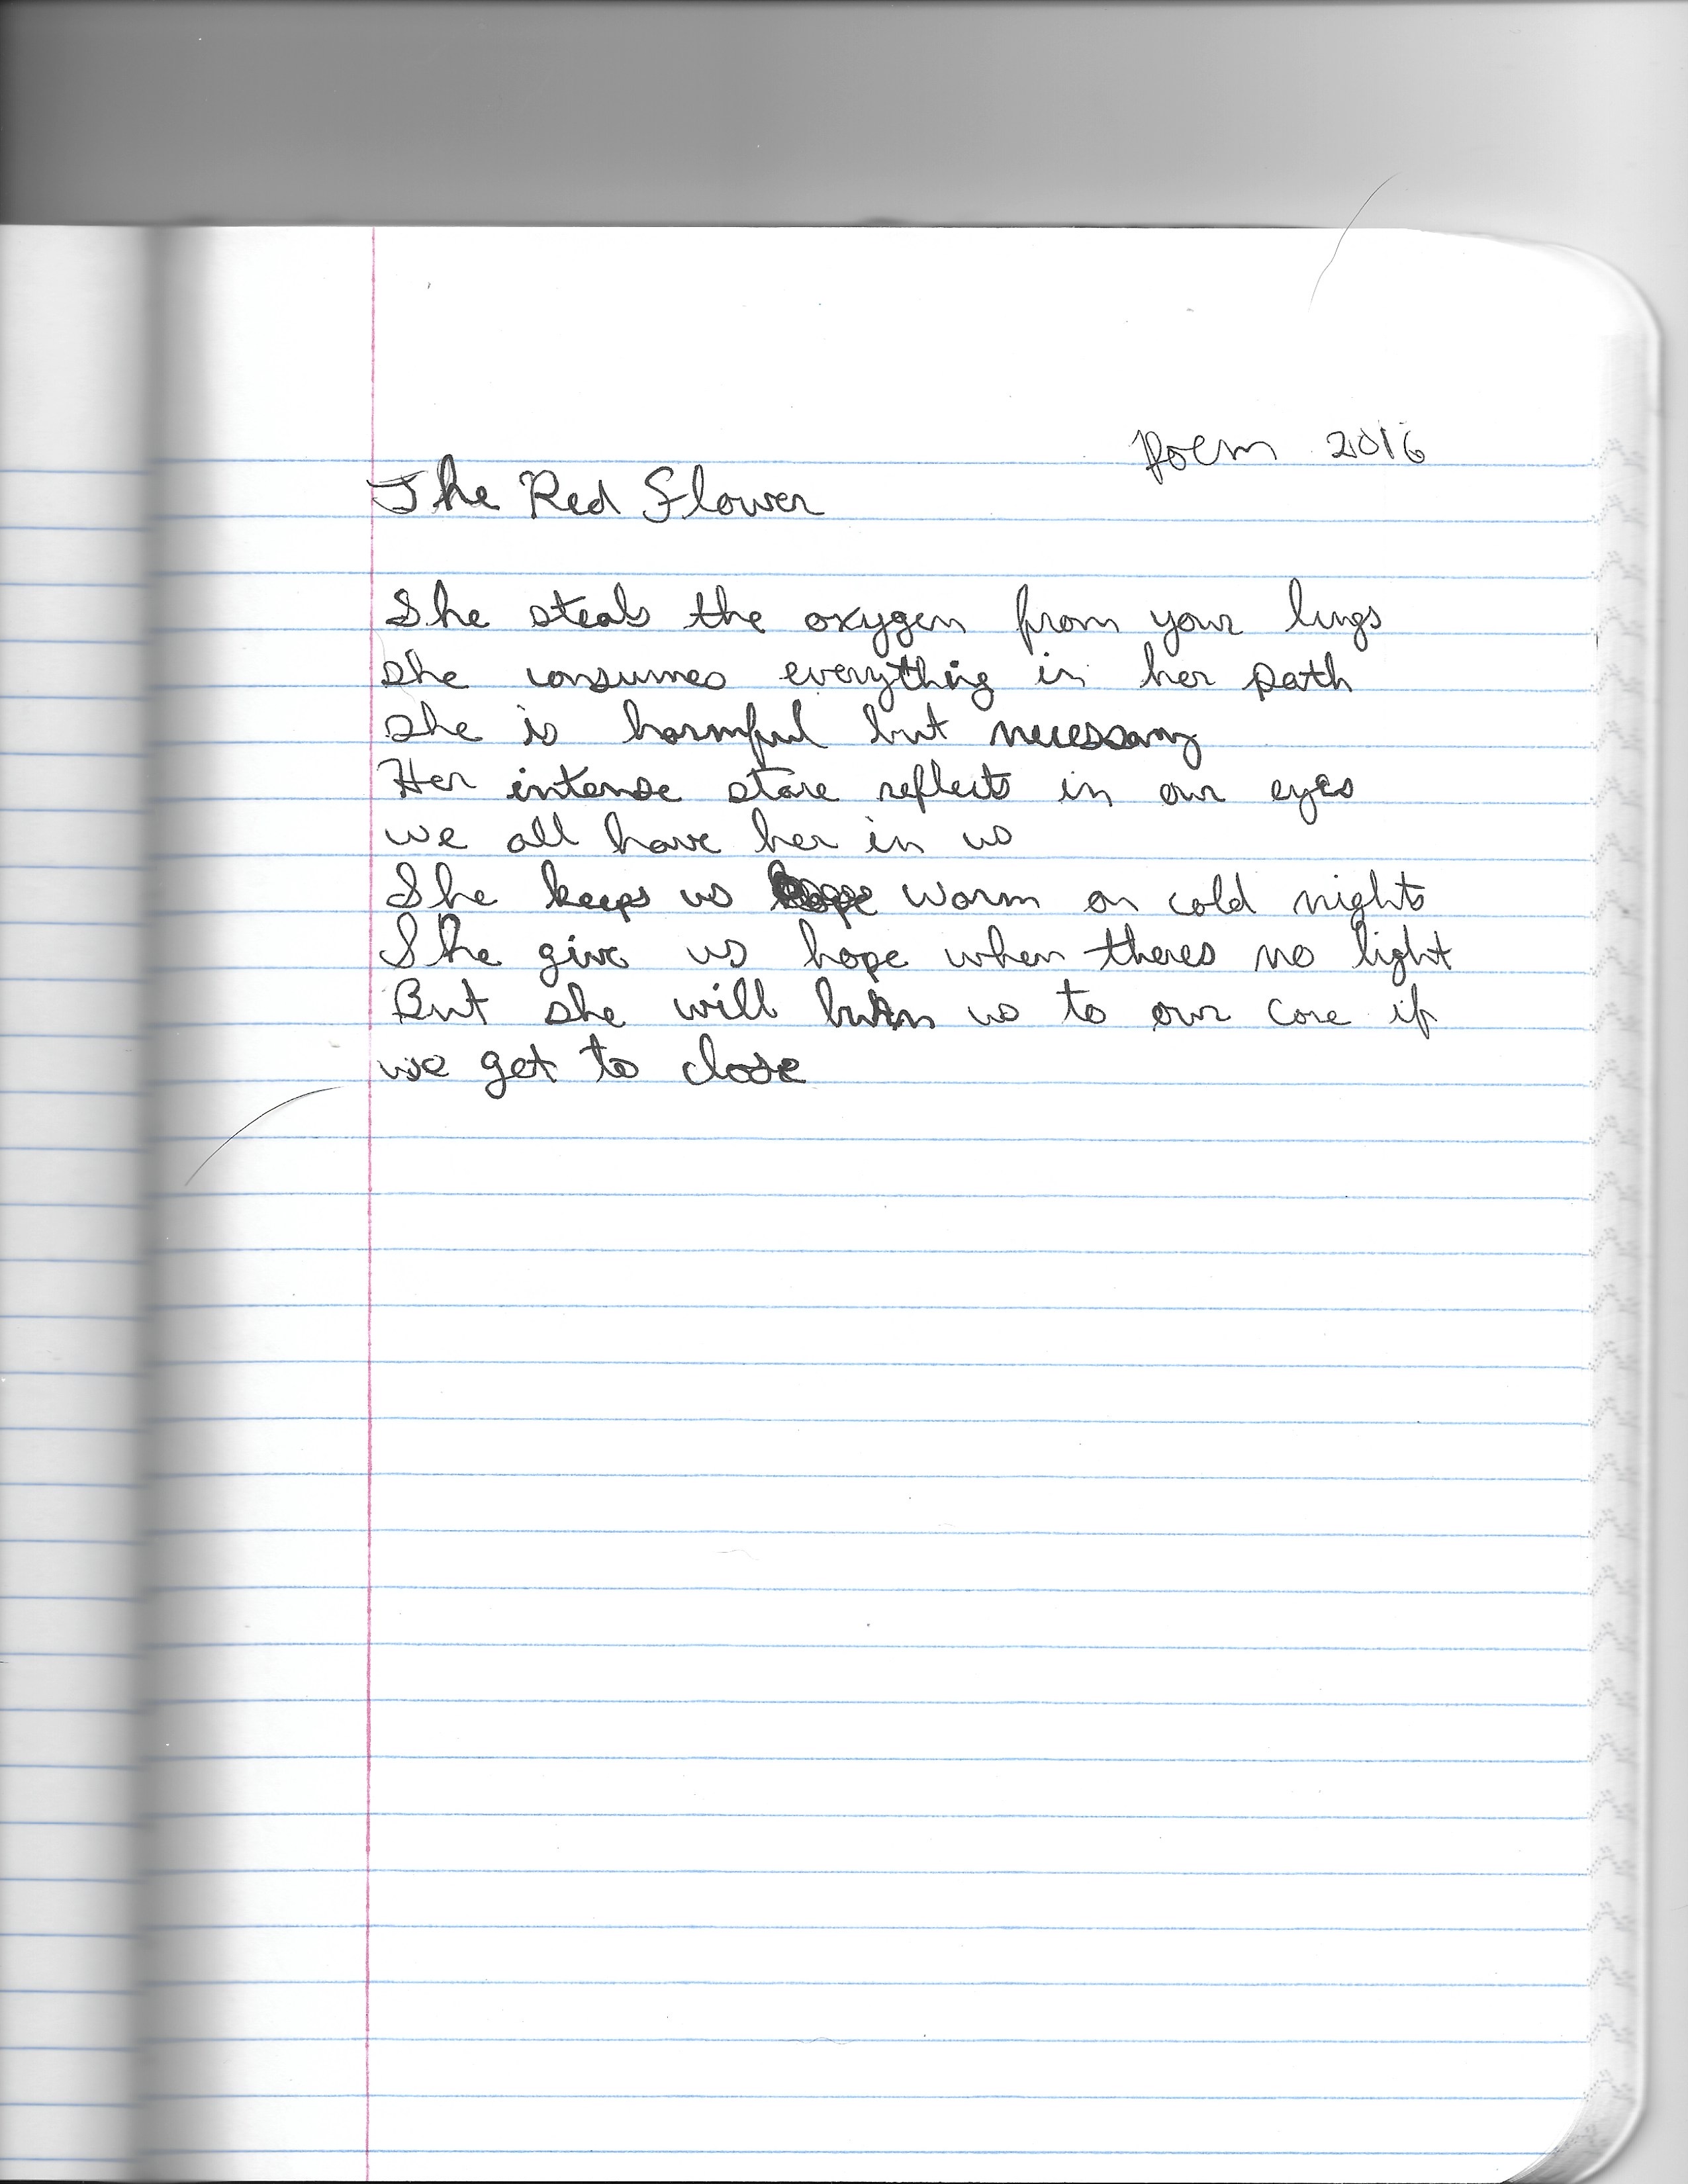 Poem 2016
The Red Flower
She steals the oxygen from your lungs
she consumes everything in her path
she is harmful but necessary
Her intense stare reflects in our eyes
we all have her in us
She keeps us warm on cold nights
She give us hope when theres no light
But she will burn us to our core if
we get to close